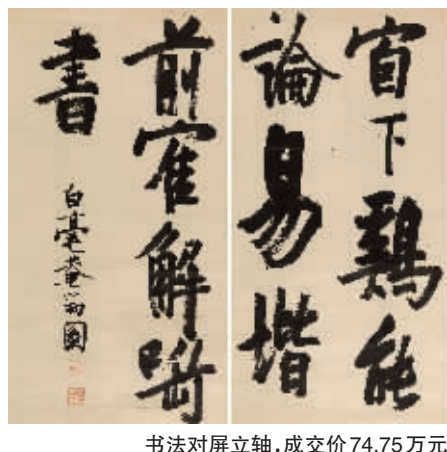 窗下鷄能
論易堦
前寉解听
書
白毫菴瑞圖
书法对屏立轴，成交价74.75万元